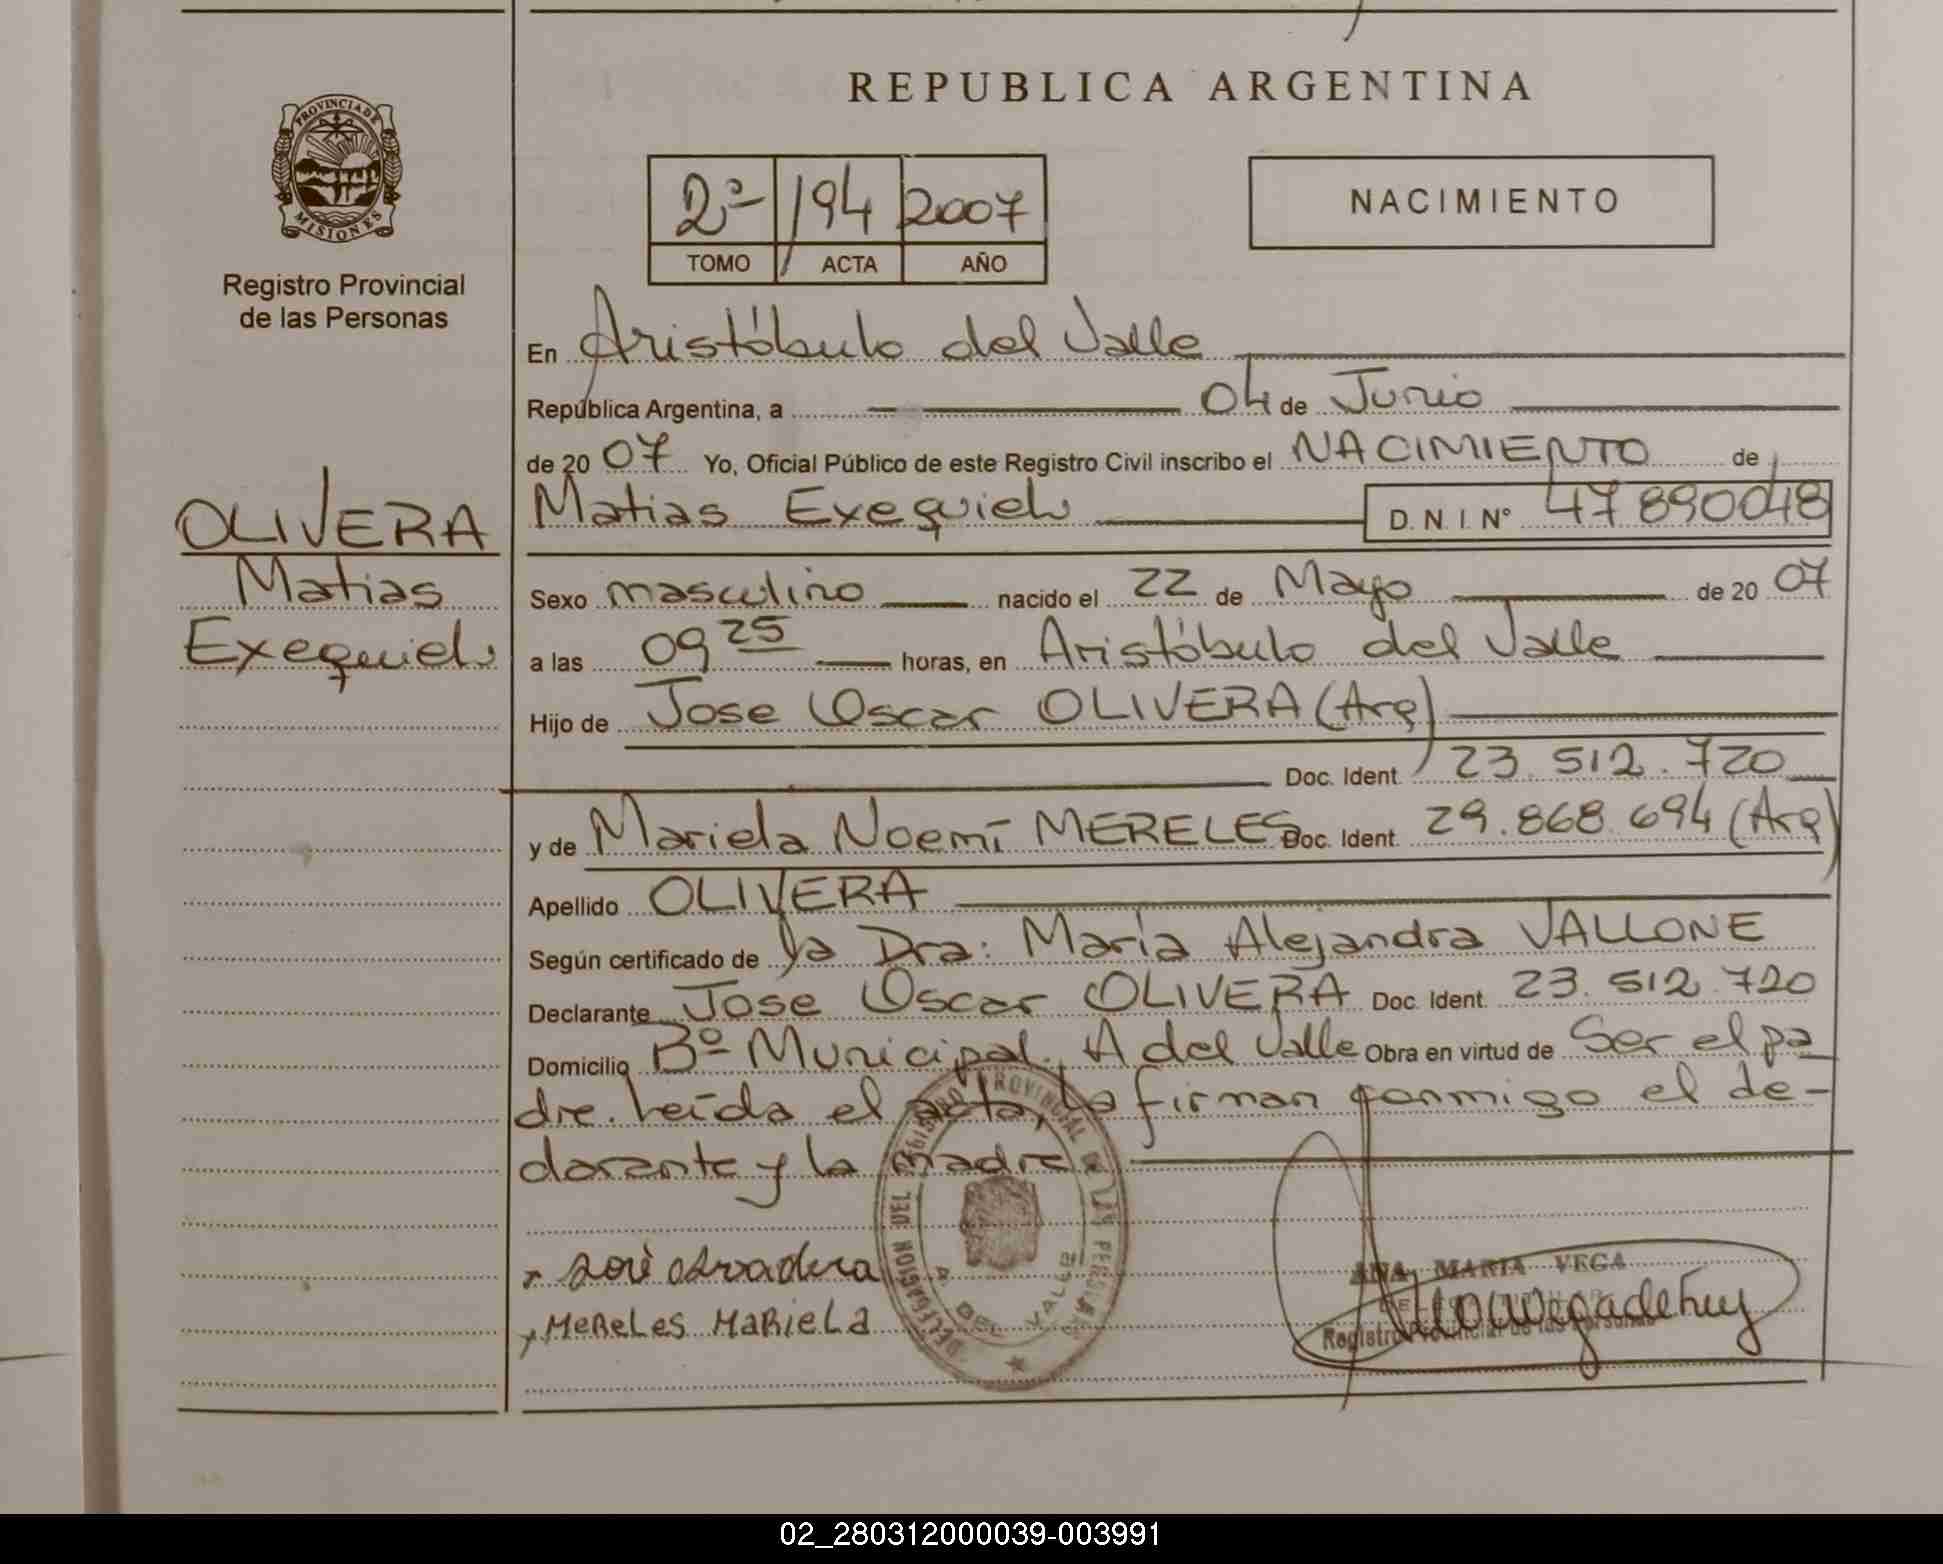 REPUBLICA ARGENTINA
PROVINCIA DE
MISIONES
Registro Provincial
de las Personas
2º 194 2007
TOMO ACTA AÑO
NACIMIENTO
En Aristóbulo del Valle
República Argentina, a 04 de Junio
de 20 07 Yo, Oficial Público de este Registro Civil inscribo el NACIMIENTO de
Matias Exequiel D. N. I. Nº 47890048
OLIVERA
Matias
Exequiel
Sexo masculino nacido el 22 de Mayo de 20 07
a las 09 25 horas, en Aristóbulo del Valle
Hijo de Jose Oscar OLIVERA (Arg)
Doc. Ident. 23.512.720
y de Mariela Noemí MERELES Doc. Ident. 29.868.694 (Arg)
Apellido OLIVERA
Según certificado de la Dra: María Alejandra VALLONE
Declarante Jose Oscar OLIVERA Doc. Ident. 23.512.720
Domicilio Bº Municipal. A del Valle Obra en virtud de Ser el pa
dre. Leída el acta, la firman conmigo el de-
clarante y la madre
DELEGACION DEL REGISTRO PROVINCIAL DE LAS PERSONAS
A. DEL VALLE
José
MERELES MARIELA
ANA MARIA VEGA
Registro Provincial de las Personas
02_280312000039-003991